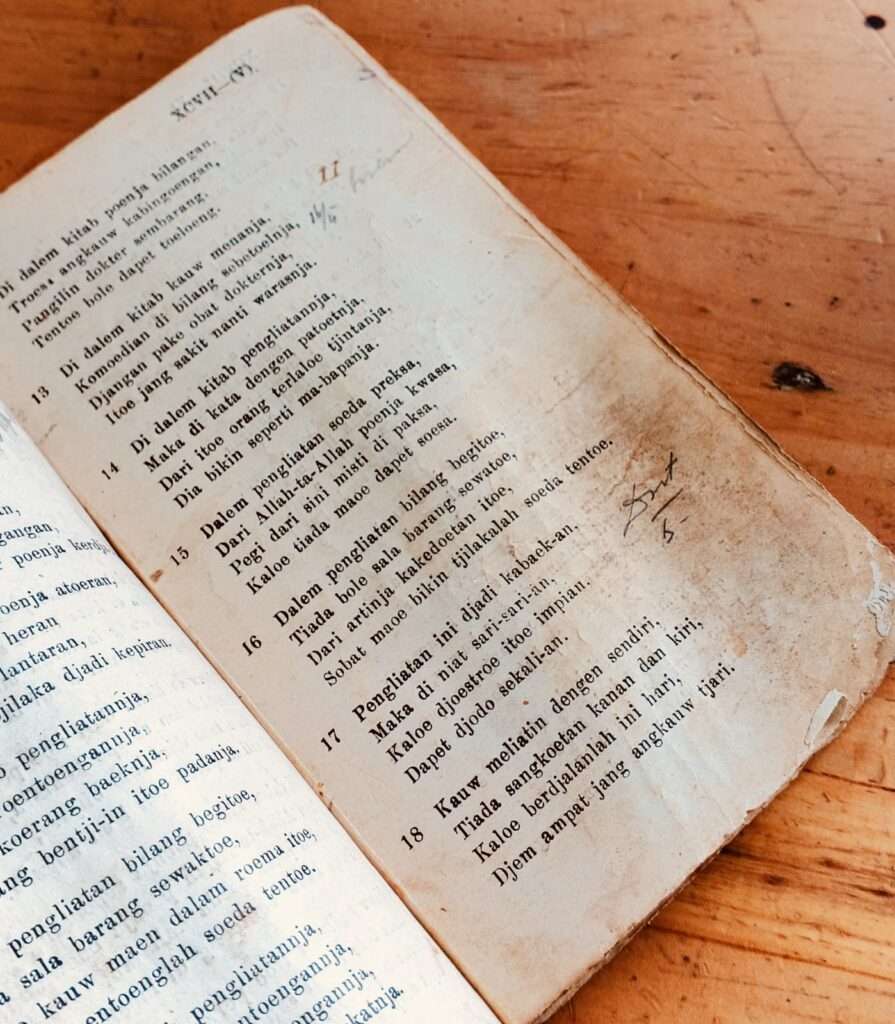 an,
gangan,
poenja kerdja
oenja atoeran,
heran
lantaran,
jilaka djadi kepiran.
pengliatannja,
oentoengannja,
koerang baeknja,
ng bentji-in itoe padanja.
pengliatan bilang begitoe,
a sala barang sewaktoe,
kauw maen dalam roema itoe,
entoenglah soeda tentoe.
pengliatannja,
entoengannja,
engannja,
katnja.
XCVII—(V)
11
Di dalem kitab poenja bilangan,
Troes angkauw kabingoengan,
Pangilin dokter sembarang.
Tentoe bole dapet toeloeng.
16/5
13 Di dalem kitab kauw menanja,
Komoedian di bilang sebetoelnja,
Djangan pake obat dokternja,
Itoe jang sakit nanti warasnja.
14 Di dalem kitab pengliatannja,
Maka di kata dengen patoetnja,
Dari itoe orang terlaloe tjintanja,
Dia bikin seperti ma-bapanja.
15 Dalem pengliatan soeda preksa,
Dari Allah-ta-Allah poenja kwasa,
Pegi dari sini misti di paksa,
Kaloe tiada maoe dapet soesa.
16 Dalem pengliatan bilang begitoe,
Tiada bole sala barang sewatoe,
Dari artinja kakedoetan itoe,
Sobat maoe bikin tjilakalah soeda tentoe.
5-
17 Pengliatan ini djadi kabaek-an,
Maka di niat sari-sari-an,
Kaloe djoestroe itoe impian.
Dapet djodo sekali-an.
18 Kauw meliatin dengen sendiri,
Tiada sangkoetan kanan dan kiri,
Kaloe berdjalanlah ini hari,
Djem ampat jang angkauw tjari.